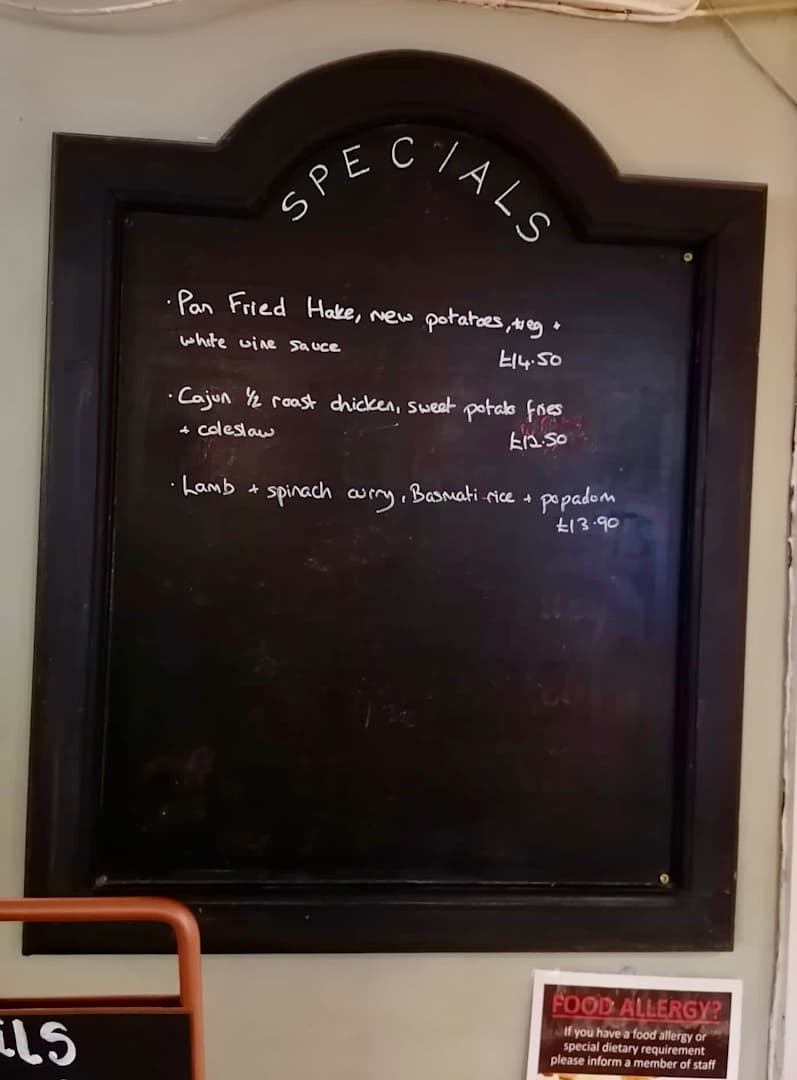 SPECIALS
· Pan Fried Hake, new potatoes, veg +
white wine sauce
£14.50
· Cajun ½ roast chicken, sweet potato fries
+ coleslaw
£12.50
· Lamb + spinach curry, Basmati rice + popadom
£13.90
ILS
FOOD ALLERGY?
If you have a food allergy or
special dietary requirement
please inform a member of staff